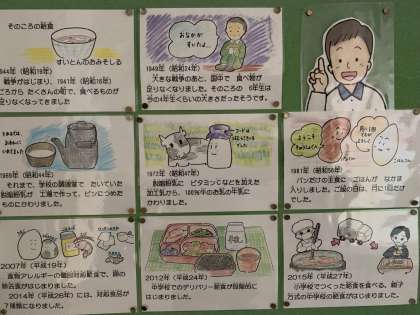 そのころの給食
すいとんのおみそしる
1944年（昭和19年）
戦争がはじまり、1941年（昭和16年）
ごろから 足しんの町で、食べるものが
足りなくなってきました
おなかが
すいたよ
1949年（昭和24年）
大きな戦争のあと、国中で 食べ物が
足りなくなりました。そのころの 6年生は
今の4年生くらいの大きさだったそうです。
1969年（昭和44年）
それまで、学校の調理室で たいていた
脱脂粉乳が 工場で作って、ビンにつめた
ものにかわりました。
1972年（昭和47年）
脱脂粉乳に ビタミンCなどを加えた
加工乳から、100％牛の乳の牛乳に
かわりました。
ようこそ
1981年（昭和56年）
パンだけの主食に ごはんが なかま
入りしました。ご飯の日は、月に1回だけ
でした。
2007年（平成19年）
食物アレルギーの個別対応給食で、卵の
除去食がはじまりました。
2014年（平成26年）には、対応食品が
7種類になりました。
2012年（平成24年）
中学校でのデリバリー給食が段階的に
はじまりました。
2015年（平成27年）
小学校でつくった給食を食べる、親子
方式の中学校の給食がはじまりました。